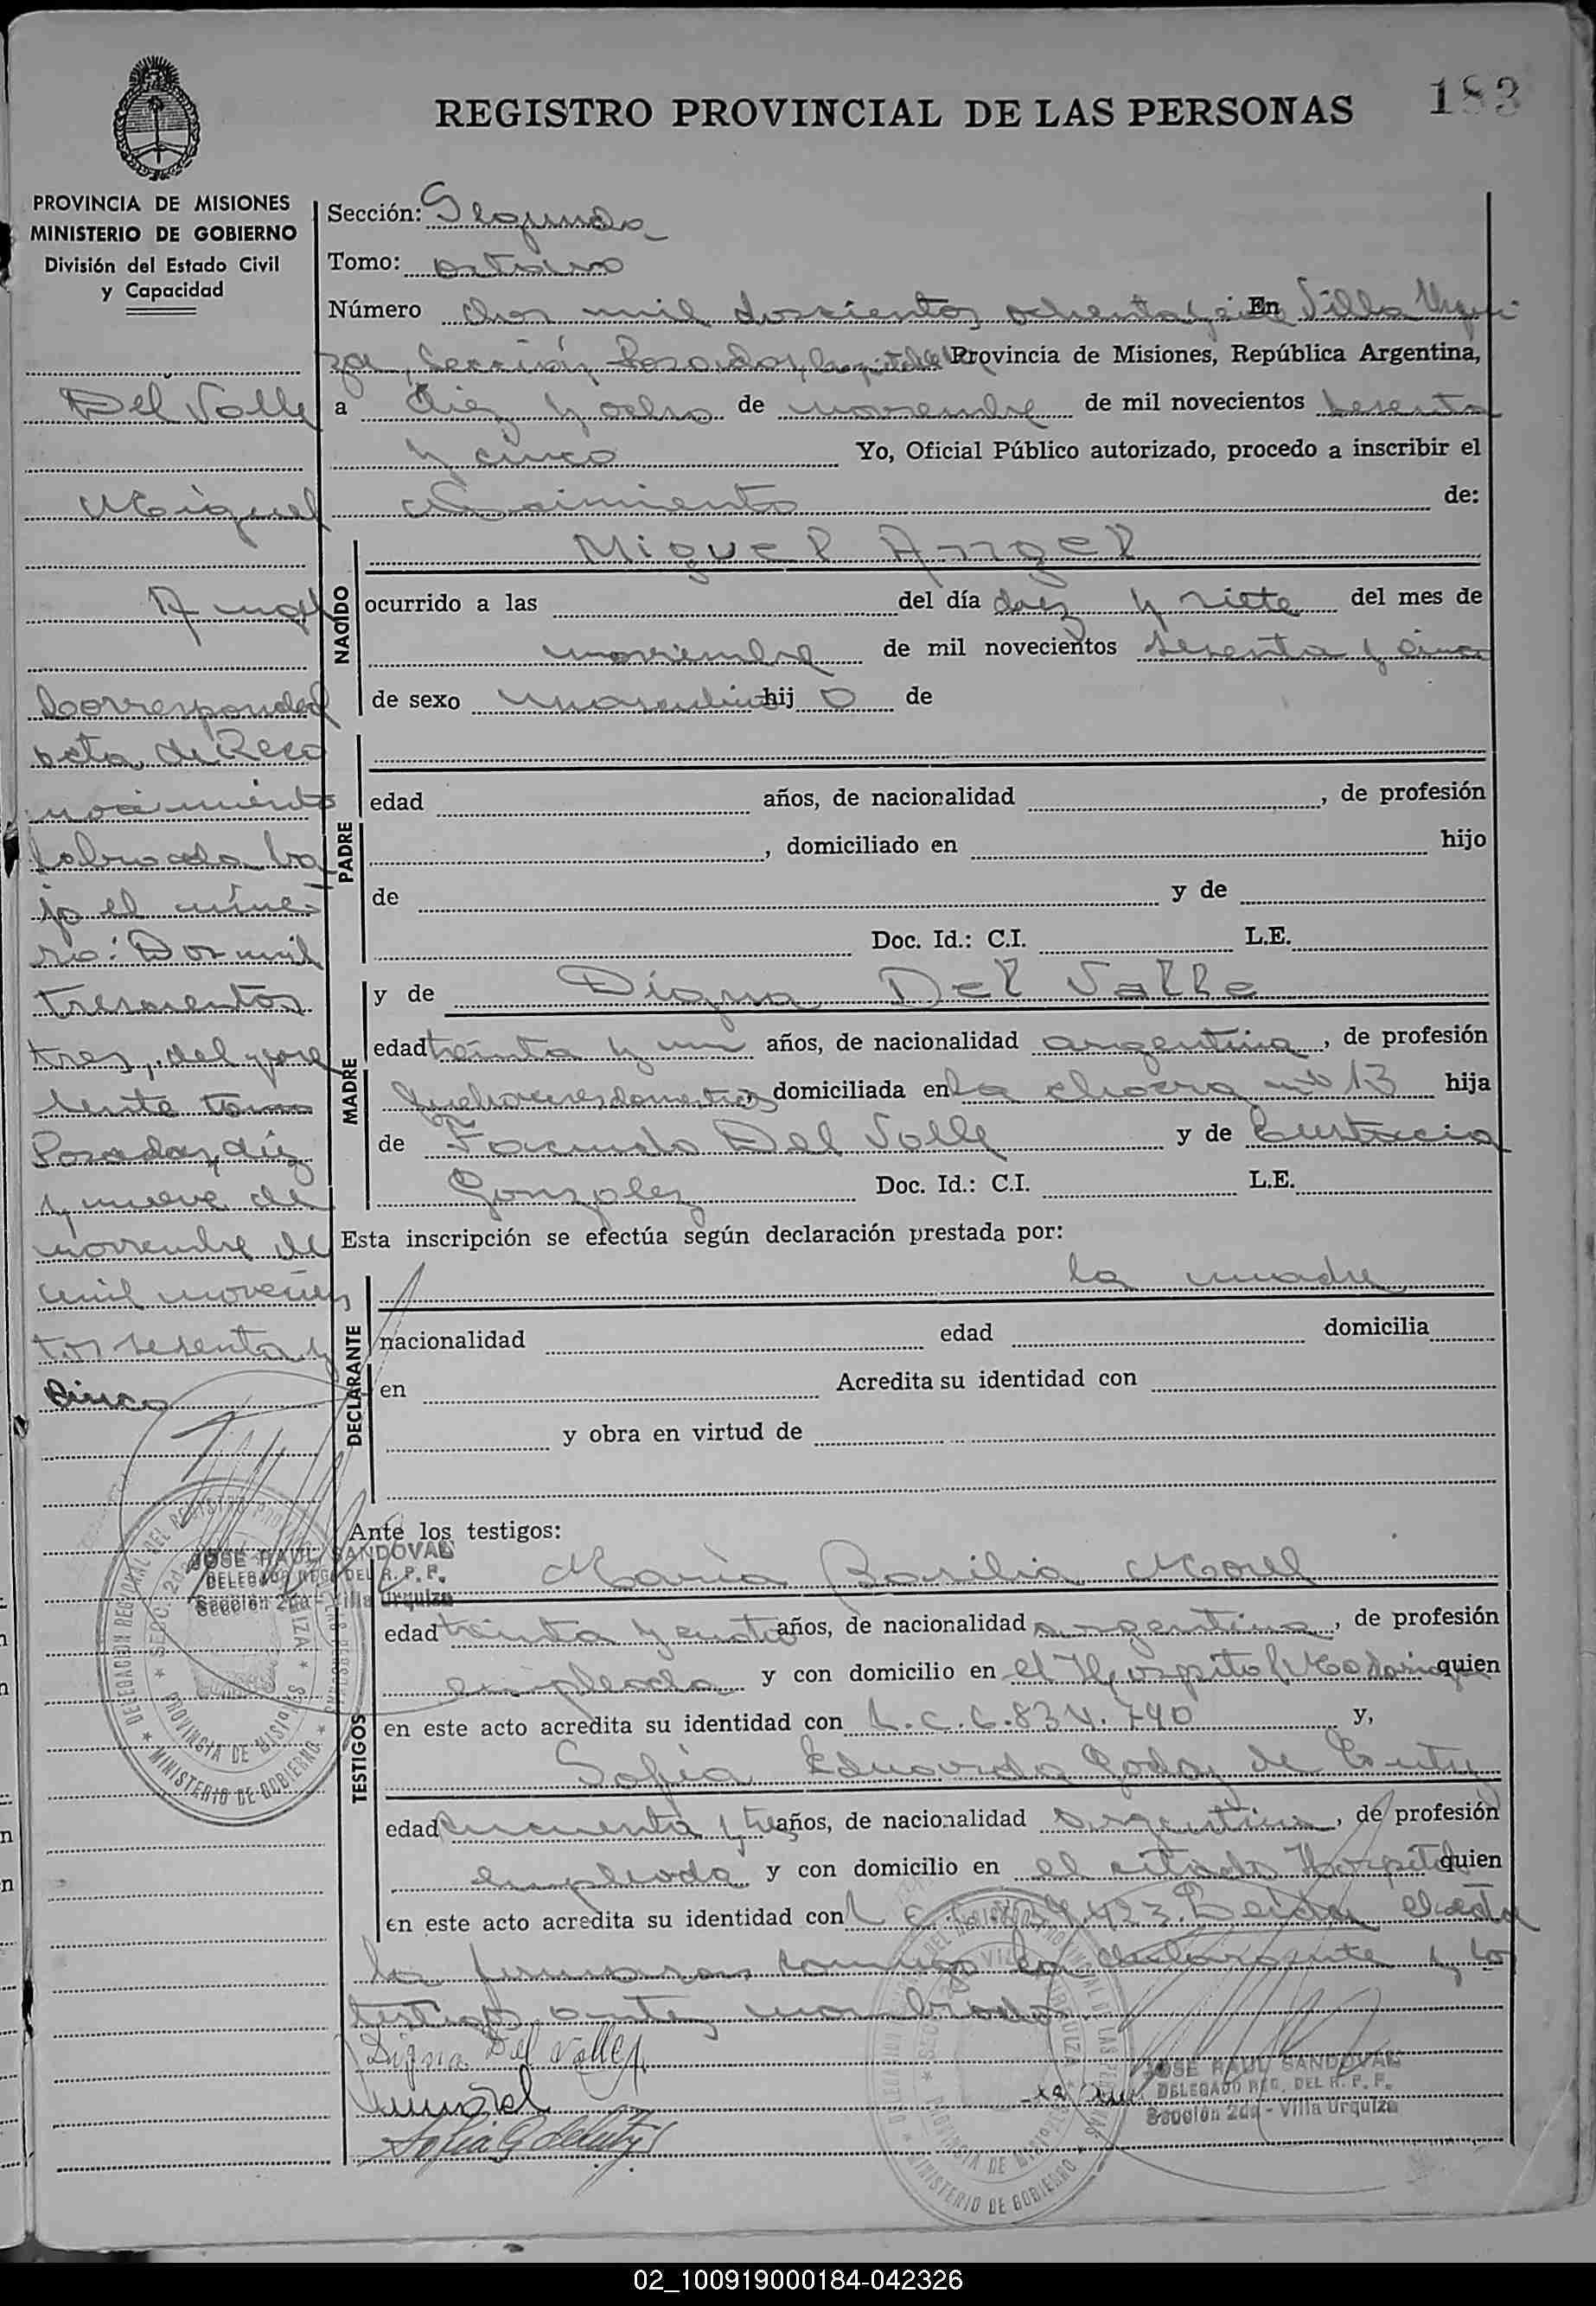 183
REGISTRO PROVINCIAL DE LAS PERSONAS
PROVINCIA DE MISIONES
MINISTERIO DE GOBIERNO
División del Estado Civil
y Capacidad
Del Valle
Miguel
Angel
Corresponde el
acta de Reco
nocimiento
labrada ba
jo el núme
ro: Dos mil
trescientos
tres, del pre
sente tomo
Posadas, diez
y nueve de
noviembre de
mil novecien
tos sesenta y
cinco
JOSE RAUL SANDOVAL
DELEGADO REG. DEL R. P. P.
Sección 2da - Villa Urquiza
DELEGACION REGIONAL DEL REGISTRO PROVINCIAL DE LAS PERSONAS
MINISTERIO DE GOBIERNO
PROVINCIA DE MISIONES
Sección: Segunda
Tomo: octavo
Número dos mil doscientos ochenta y En Villa Urqui
za, Sección Posadas, Provincia de Misiones, República Argentina,
a diez y ocho de noviembre de mil novecientos sesenta
y cinco Yo, Oficial Público autorizado, procedo a inscribir el
Nacimiento de:
NACIDO
Miguel Angel
ocurrido a las del día diez y siete del mes de
noviembre de mil novecientos sesenta y cinco
de sexo masculino hij o de
PADRE
edad años, de nacionalidad , de profesión
, domiciliado en hijo
de y de
Doc. Id.: C.I. L.E.
MADRE
y de Digna Del Valle
edad treinta y un años, de nacionalidad argentina, de profesión
quehaceres domesticos, domiciliada en la chacra nº 13 hija
de Facundo Del Valle y de Eustacia
Gonzalez Doc. Id.: C.I. L.E.
Esta inscripción se efectúa según declaración prestada por:
DECLARANTE
la madre
nacionalidad edad domicilia
en Acredita su identidad con
y obra en virtud de
Ante los testigos:
TESTIGOS
Maria Basilia Morel
edad treinta y años, de nacionalidad argentina, de profesión
empleada y con domicilio en el Hospital Madariaga quien
en este acto acredita su identidad con L.C. 6.834.740 y,
Sofia Eduarda Godoy de
edad cincuenta y tres años, de nacionalidad argentina, de profesión
empleada y con domicilio en el citado Hospital quien
en este acto acredita su identidad con L.C. 423. Leida el acta
la firmaron conmigo la declarante y los
testigos antes nombrados.
Digna Del Valle
Morel
Sofia G de
JOSE RAUL SANDOVAL
DELEGADO REG. DEL R. P. P.
Sección 2da - Villa Urquiza
MINISTERIO DE GOBIERNO
PROVINCIA DE MISIONES
02_100919000184-042326